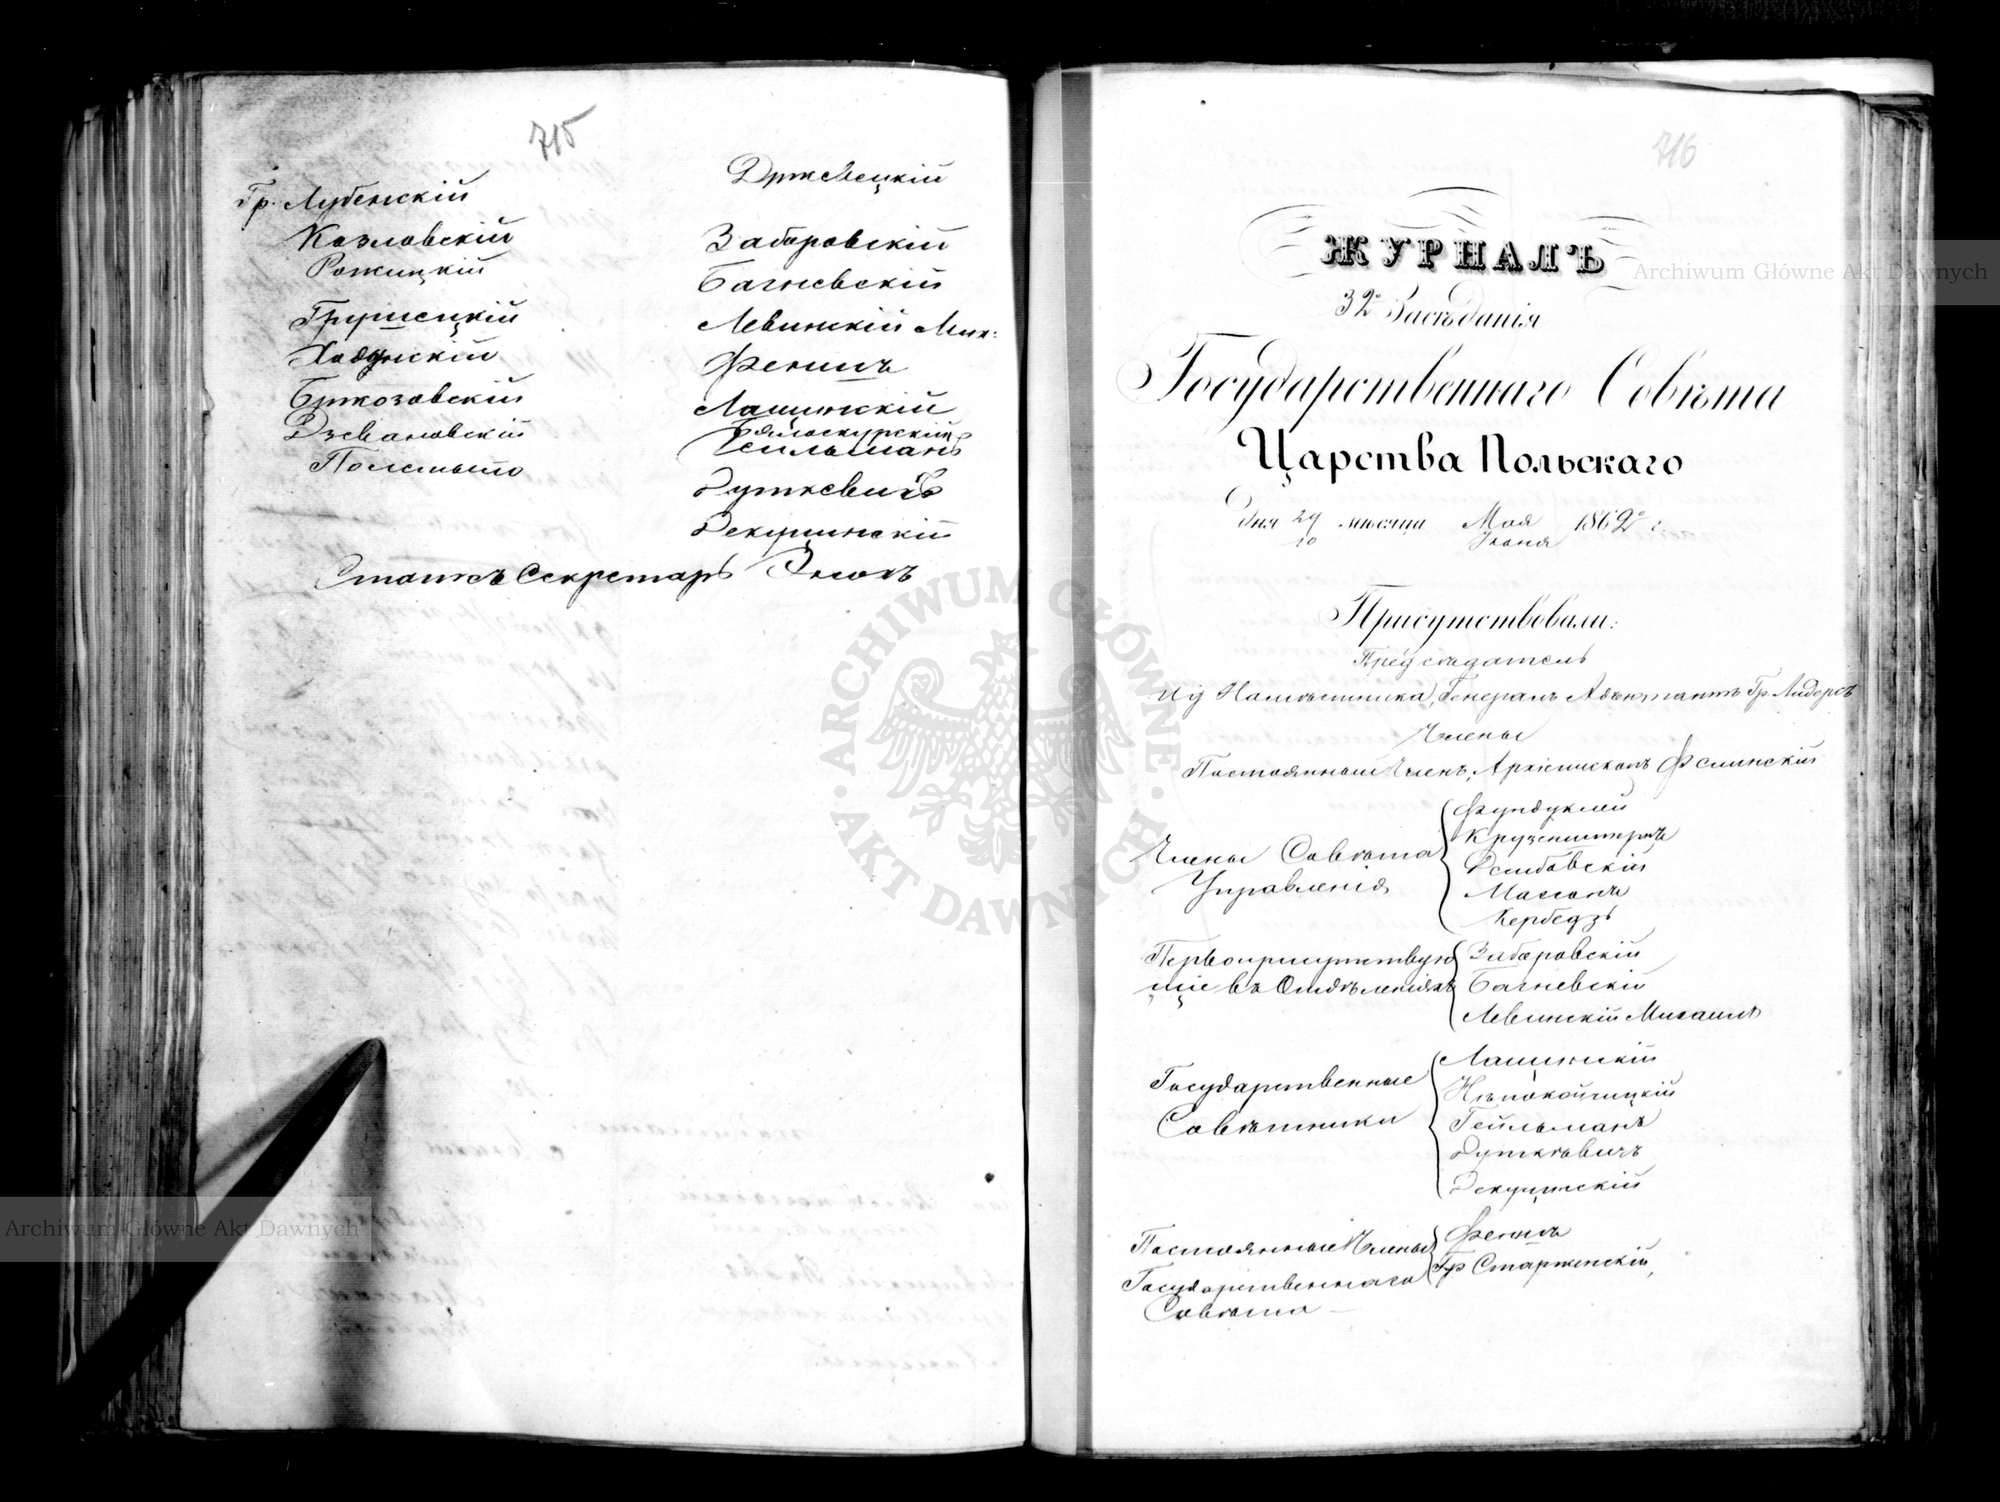 715
Гр. Лубенскій
Козловскій
Рожицкій
Грушецкій
Хелмскій
Бржозовскій
Дзевановскій
Полетыло
Држевецкій
Заборовскій
Багневскій
Левинскій Мих:
Феншъ
Лащинскій
Бялоскурскій
Гейльманъ
Дуткевичъ
Декуцинскій
Статсъ Секретарь Энохъ
716
ЖУРНАЛЪ
32го Засѣданія
Государственнаго Совѣта
Царства Польскаго
Дня 29 мѣсяца Мая 1862го г.
10 Іюня
Присутствовали:
Предсѣдатель
Ид Намѣстника, Генералъ Адъютантъ Гр. Лидерсъ
Члены
Постоянный Членъ, Архіепископъ Фелинскій
Члены Совѣта
Управленія
Фундуклей
Крузенштернъ
Дембовскій
Массонъ
Кербедзъ
Первоприсутствую
щіе въ Отдѣленіяхъ
Заборовскій
Багневскій
Левинскій Михаилъ
Государственные
Совѣтники
Лащинскій
Нѣпокойчицкій
Гейльманъ
Дуткевичъ
Декуцинскій
Постоянные Члены
Государственнаго
Совѣта
Феншъ
Гр Старженскій,
Archiwum Główne Akt Dawnych
Archiwum Główne Akt Dawnych
ARCHIWUM GŁÓWNE · AKT DAWNYCH ·